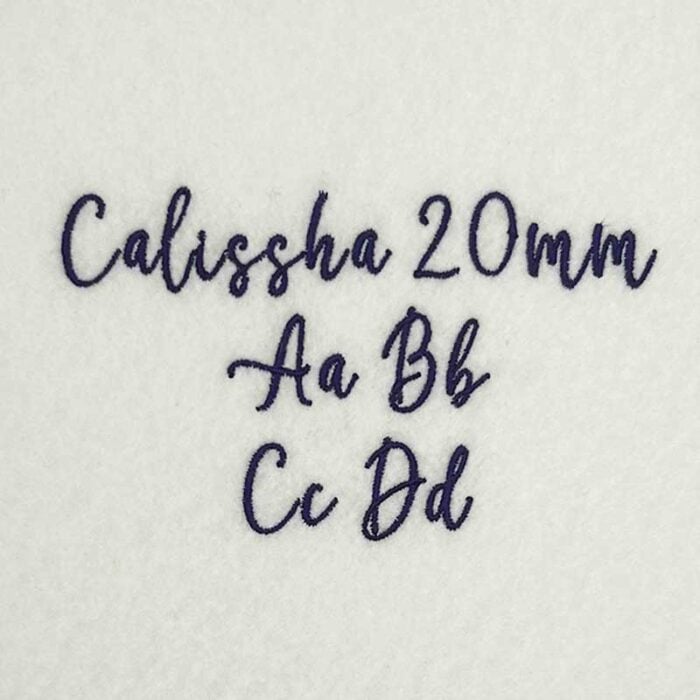 Calissha 20mm
Aa Bb
Cc Dd